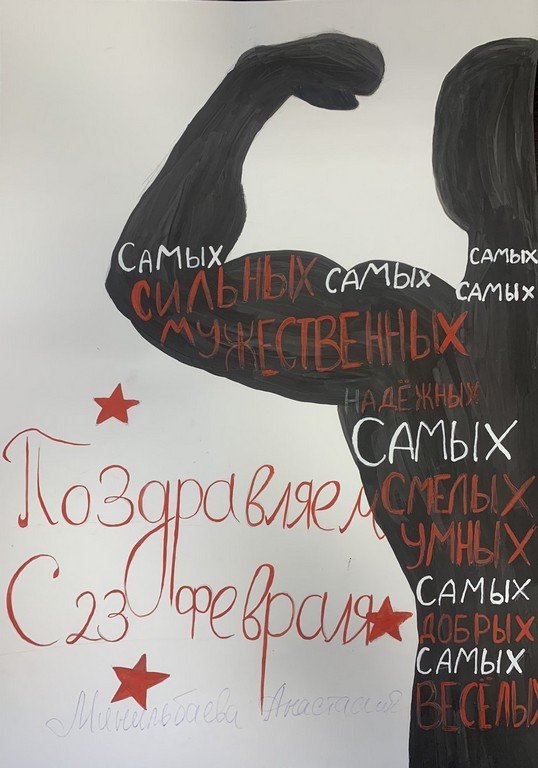 САМЫХ САМЫХ
СИЛЬНЫХ САМЫХ САМЫХ
МУЖЕСТВЕННЫХ
НАДЁЖНЫХ
САМЫХ
Поздравляем СМЕЛЫХ
УМНЫХ
С 23 февраля САМЫХ
ДОБРЫХ
САМЫХ
ВЕСЁЛЫХ
Минильбаева Анастасия